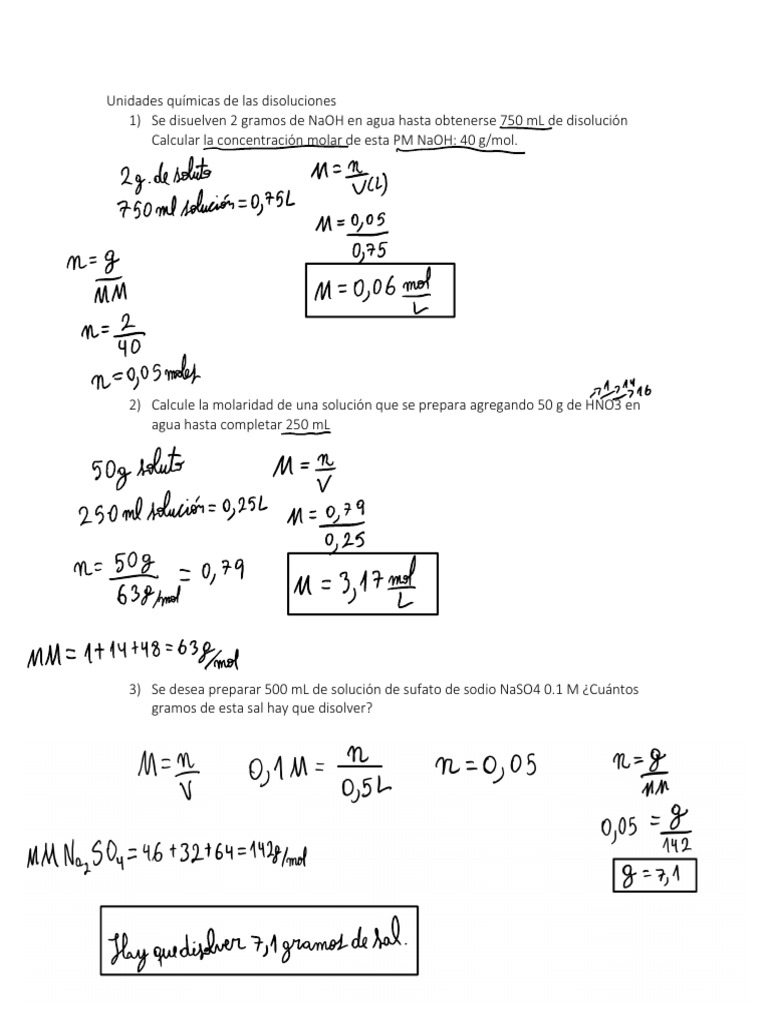 Unidades químicas de las disoluciones
1) Se disuelven 2 gramos de NaOH en agua hasta obtenerse 750 mL de disolución
Calcular la concentración molar de esta PM NaOH: 40 g/mol.
2g. de soluto
750 ml solución = 0,75L
M = n/V(L)
M = 0,05/0,75
M = 0,06 mol/L
n = g/MM
n = 2/40
n = 0,05 moles
2) Calcule la molaridad de una solución que se prepara agregando 50 g de HNO3 en
→1 →14 →16
agua hasta completar 250 mL
50g soluto
250 ml solución = 0,25L
n = 50g/63g/mol = 0,79
M = n/V
M = 0,79/0,25
M = 3,17 mol/L
MM = 1+14+48 = 63g/mol
3) Se desea preparar 500 mL de solución de sufato de sodio NaSO4 0.1 M ¿Cuántos
gramos de esta sal hay que disolver?
M = n/V
0,1M = n/0,5L
n = 0,05
n = g/MM
0,05 = g/142
g = 7,1
MM Na2SO4 = 46 + 32 + 64 = 142g/mol
Hay que disolver 7,1 gramos de sal.